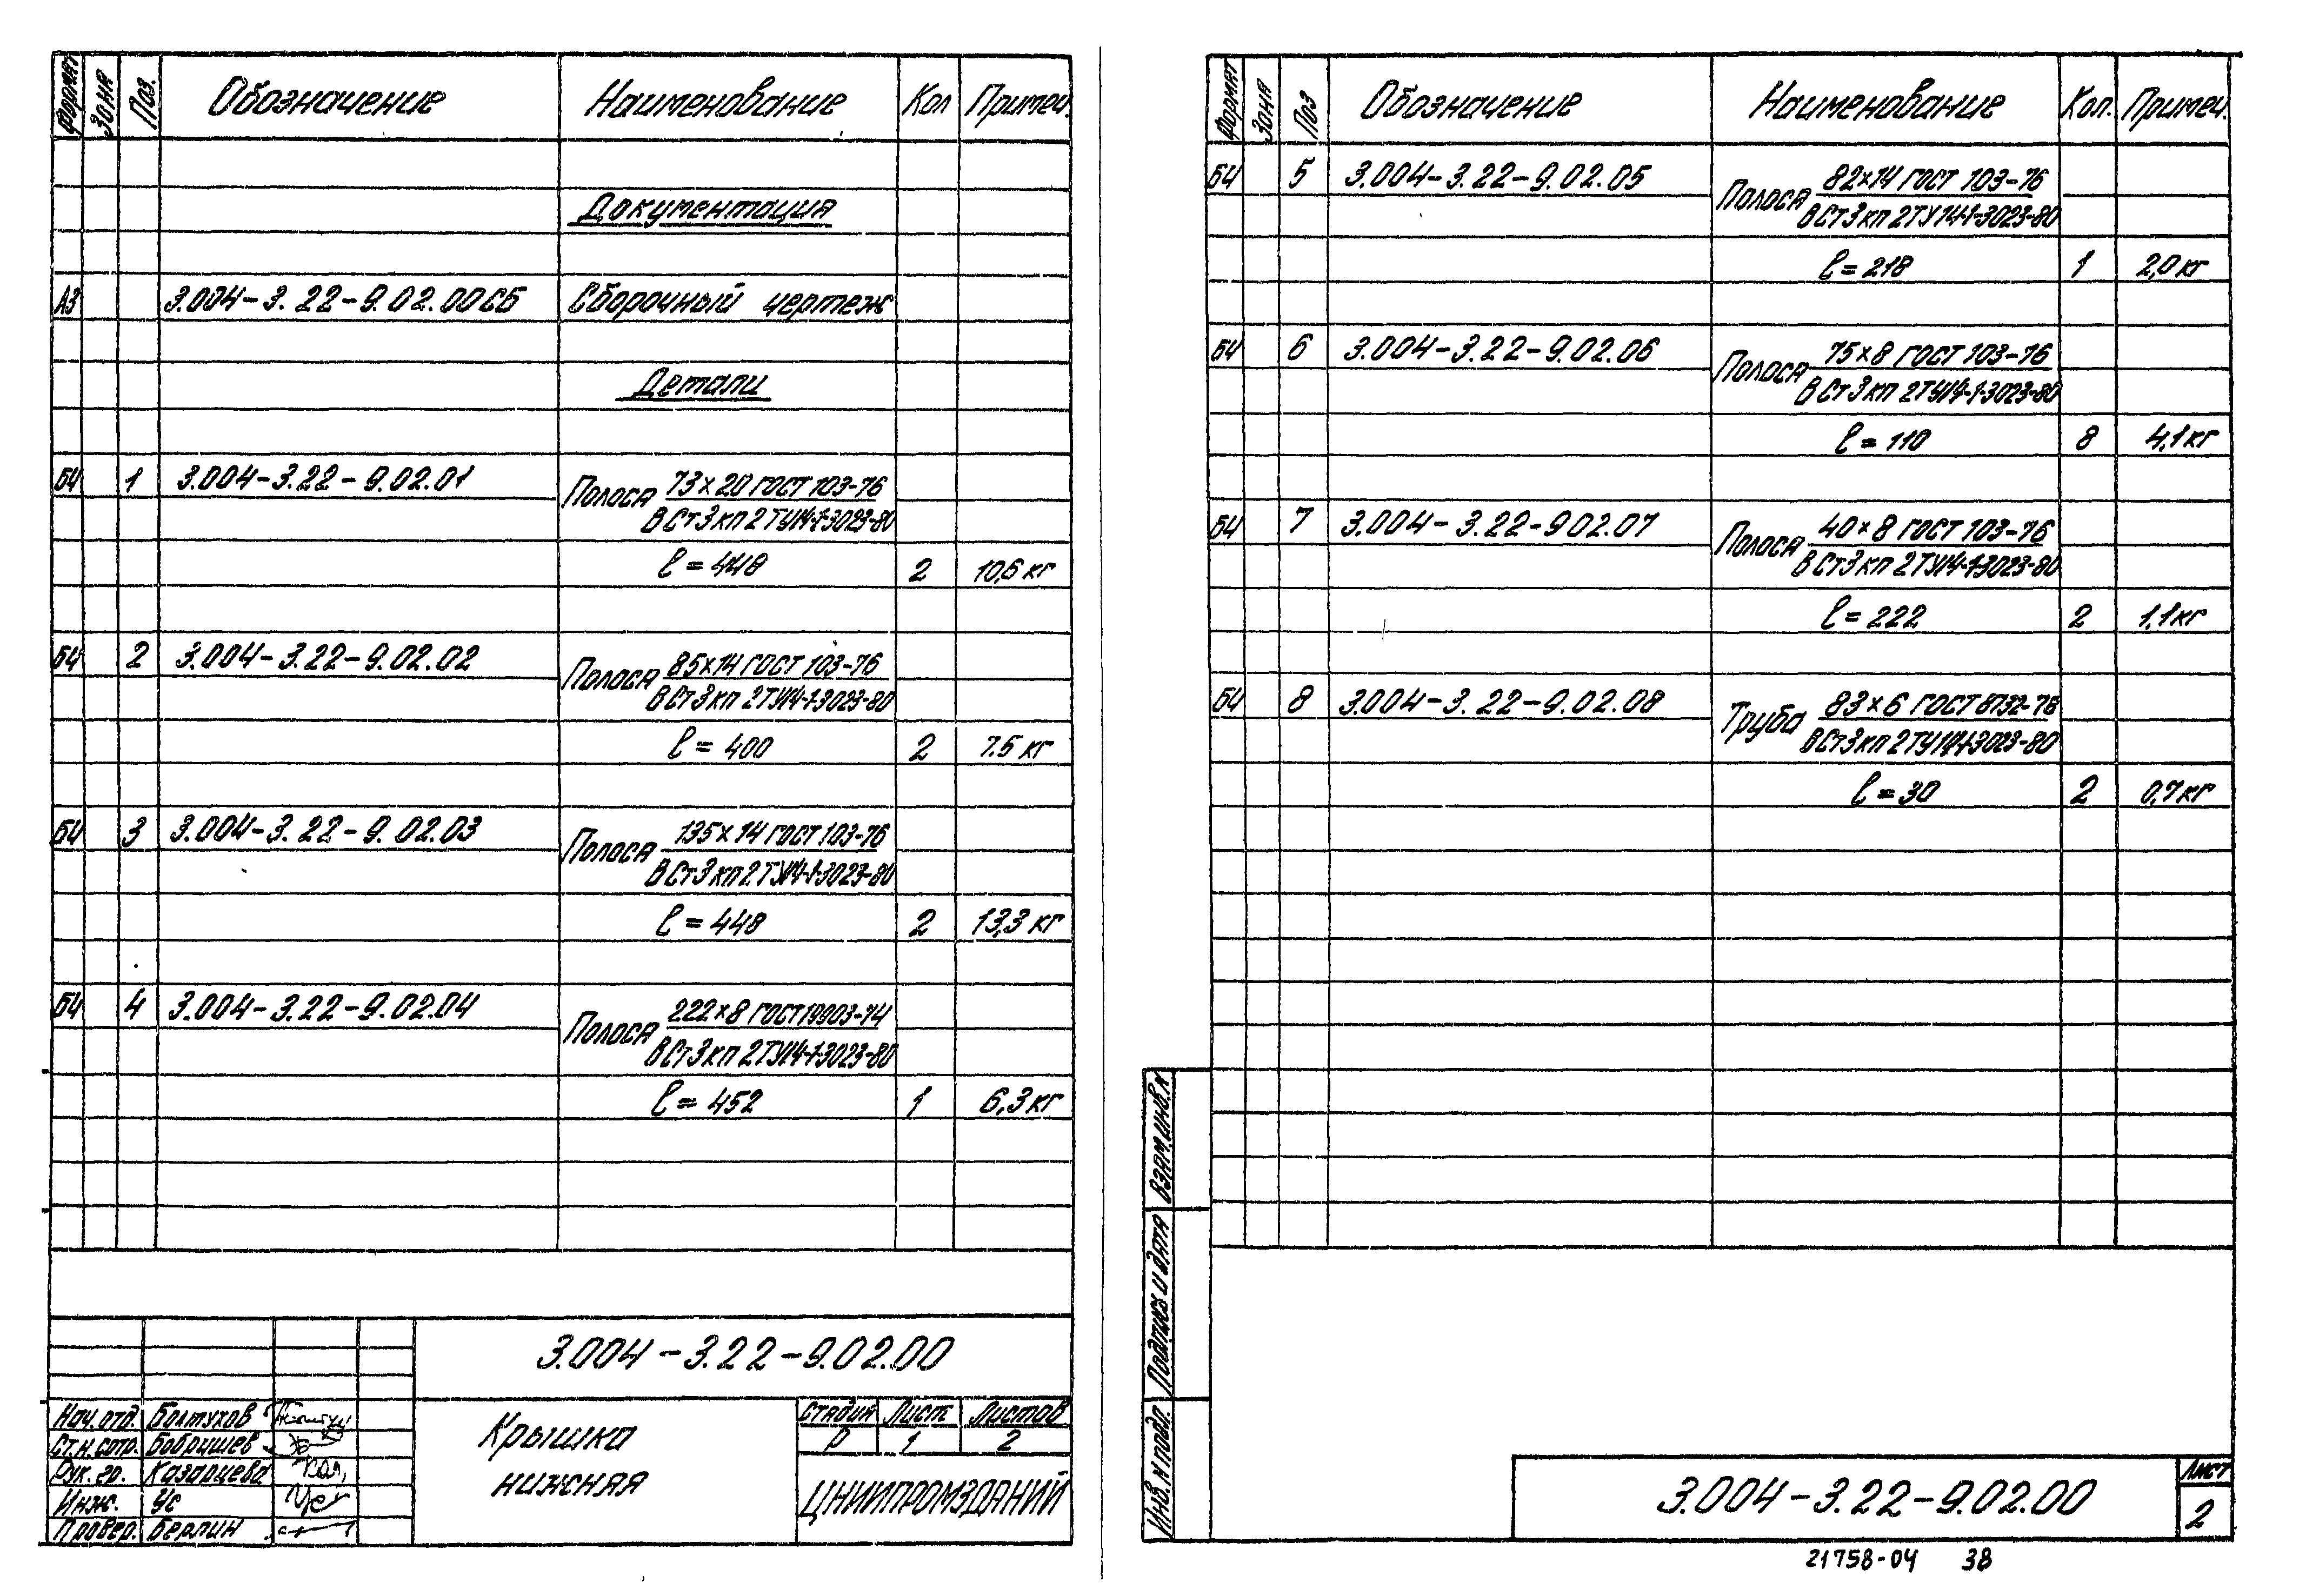 Формат Зона Поз. Обозначение Наименование Кол Примеч.
Документация
А3 3.004-3.22-9.02.00СБ Сборочный чертеж
Детали
БЧ 1 3.004-3.22-9.02.01 Полоса 73×20 ГОСТ 103-76
ВСт3кп2ТУ14-1-3023-80
ℓ=448 2 10,6 кг
БЧ 2 3.004-3.22-9.02.02 Полоса 85×14 ГОСТ 103-76
ВСт3кп2ТУ14-1-3023-80
ℓ=400 2 7.5 кг
БЧ 3 3.004-3.22-9.02.03 Полоса 135×14 ГОСТ 103-76
ВСт3кп2ТУ14-1-3023-80
ℓ=448 2 13,3 кг
БЧ 4 3.004-3.22-9.02.04 Полоса 222×8 ГОСТ 19903-74
ВСт3кп2ТУ14-1-3023-80
ℓ=452 1 6,3 кг
3.004-3.22-9.02.00
Нач.отд. Болтухов
Ст.н.сотр. Бобришев
Рук.гр. Казарцева
Инж. Ус
Провер. Берлин
Крышка
нижняя
Стадия Лист Листов
Р 1 2
ЦНИИПРОМЗДАНИЙ
Формат Зона Поз Обозначение Наименование Кол. Примеч.
БЧ 5 3.004-3.22-9.02.05 Полоса 82×14 ГОСТ 103-76
ВСт3кп2ТУ14-1-3023-80
ℓ=218 1 2,0 кг
БЧ 6 3.004-3.22-9.02.06 Полоса 75×8 ГОСТ 103-76
ВСт3кп2ТУ14-1-3023-80
ℓ=110 8 4,1 кг
БЧ 7 3.004-3.22-902.07 Полоса 40×8 ГОСТ 103-76
ВСт3кп2ТУ14-1-3023-80
ℓ=222 2 1,1 кг
БЧ 8 3.004-3.22-9.02.08 Труба 83×6 ГОСТ 8732-78
ВСт3кп2ТУ14-1-3023-80
ℓ=30 2 0,7 кг
Взам.инв.N
Подпись и дата
Инв.N подл.
3.004-3.22-9.02.00
Лист
2
21758-04 38